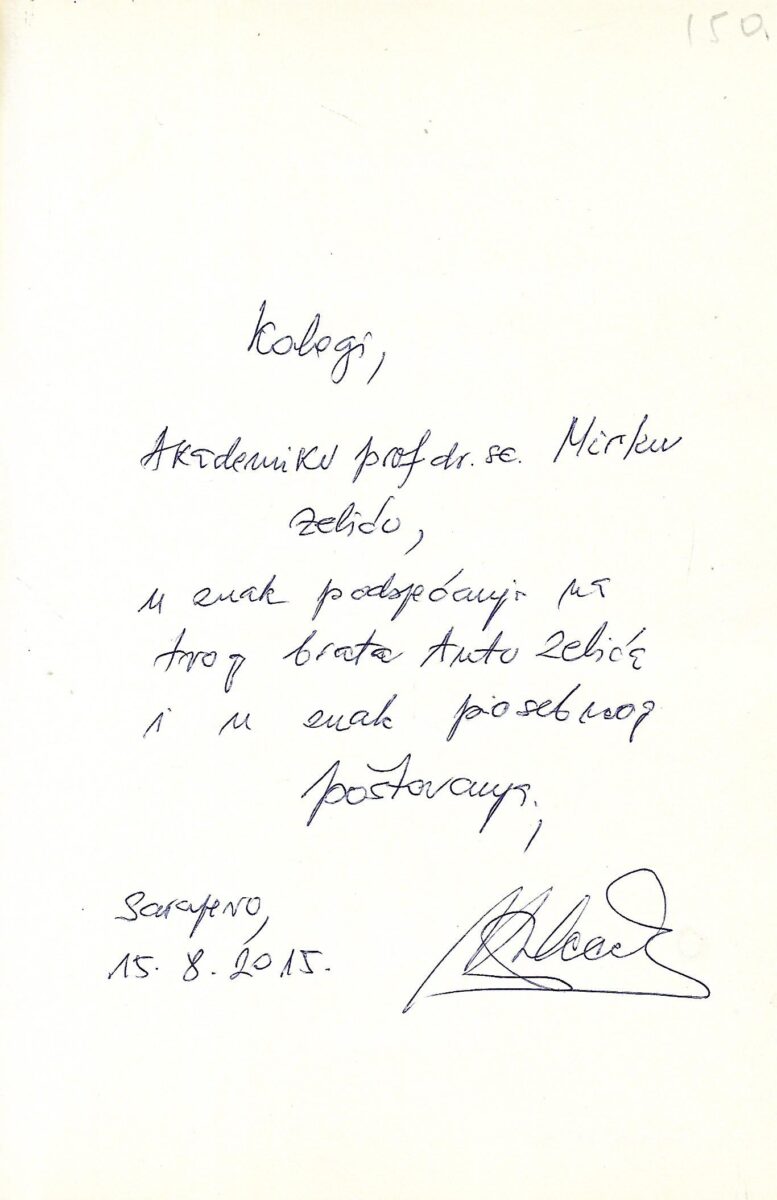 150.
Kolegi,
Akademiku prof dr. sc. Mirku
Zeliću,
u znak podsjećanja na
tvog brata Antu Zelića
i u znak posebnog
poštovanja,
Sarajevo,
15. 8. 2015.